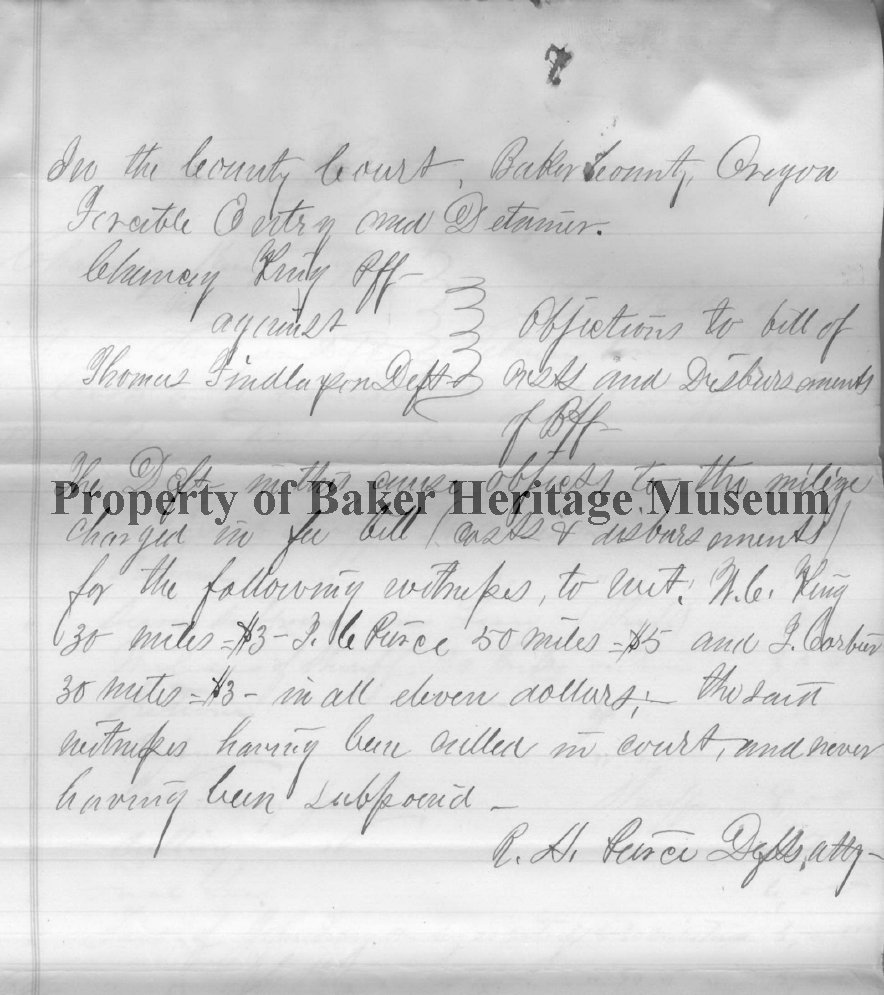 7
In the County Court, Baker County, Oregon
Forcible Entry and Detainer.
Chancey King Pff—
against
Objections to bill of
Thomas Findlayson Deft
costs and Disbursments
of Pff—
The Deft in this cause objects to the milige
Property of Baker Heritage Museum
charged in fee bill (costs & disbursments)
for the following witnesses, to wit: W.C. King
30 miles = $3 – J. C Pierce 50 miles = $5 and J. Corbier
30 miles = $3 – in all eleven dollars; — the said
witnesses having been called in court, and never
having been subpoenid —
R. H. Pierce Defts, atty—